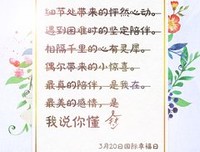 细节处带来的怦然心动。
遇到困难时的坚定陪伴。
相隔千里的心有灵犀。
偶尔带来的小惊喜。
最真的陪伴，是我在。
最美的感情，是
我说你懂
3月20日国际幸福日